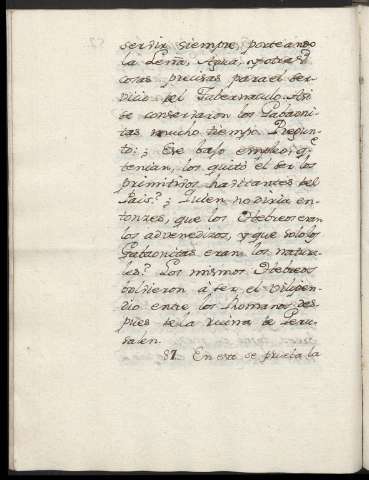 servir siempre, porteando
la Leña, Agua, y otras
cosas precisas para el ser-
vicio del Tabernaculo. Asi
se conservaron los Gabaoni-
tas mucho tiempo. Pregun-
to: ¿Ese bajo empleo, q.e
tenian, los quitó el ser los
primitivos havitantes del
Pais? ¿Quien no diria en-
tonzes, que los Hebreos eran
los advenedizos, y que solo los
Gabaonitas eran los natura-
les? Los mismos Hebreos
bolvieron a ser el vilipen-
dio entre los Romanos des-
pues de la ruina de Jeru-
salen.
87. En esta se prueba la